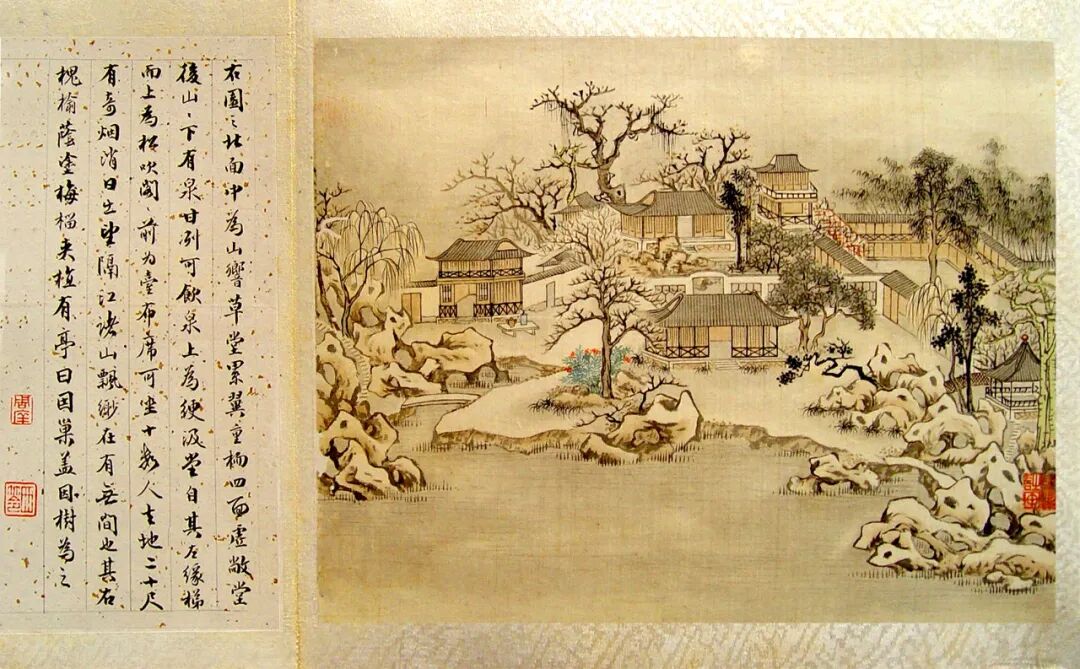 右園之北面中為山響草堂累翼重栭四面虛敞堂
後山〻下有泉甘冽可飲泉上為綆汲堂自其左緣梯
而上為松吹閣前为臺布席可坐十数人去地二十尺
有奇烟消日出望隔江諸山飄渺在有無間也其右
槐榆蔭塗梅榴夾植有亭曰因巢蓋因樹為之